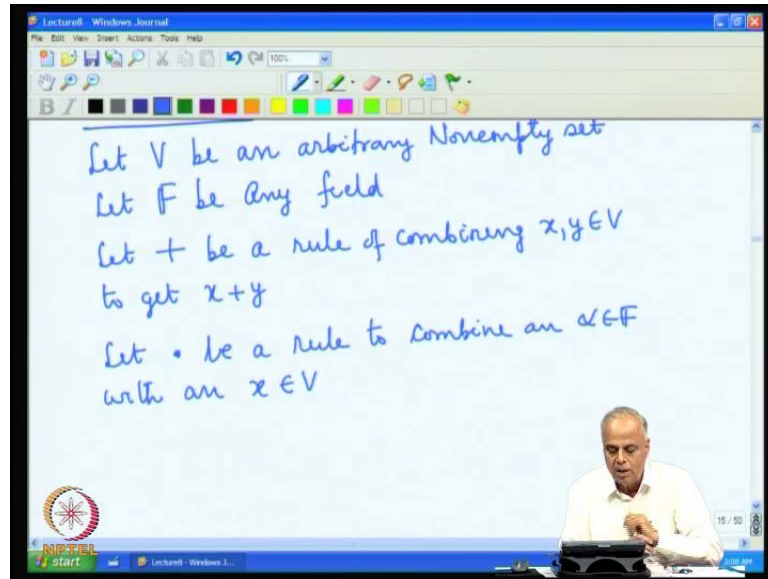 Lecture8 - Windows Journal
File Edit View Insert Actions Tools Help
100%
B I
Let V be an arbitrary Nonempty set
Let F be any field
Let + be a rule of combining x, y ∈ V
to get x + y
Let • be a rule to combine an α ∈ F
with an x ∈ V
15 / 50
NPTEL
start
Lecture8 - Windows J...
3:08 AM